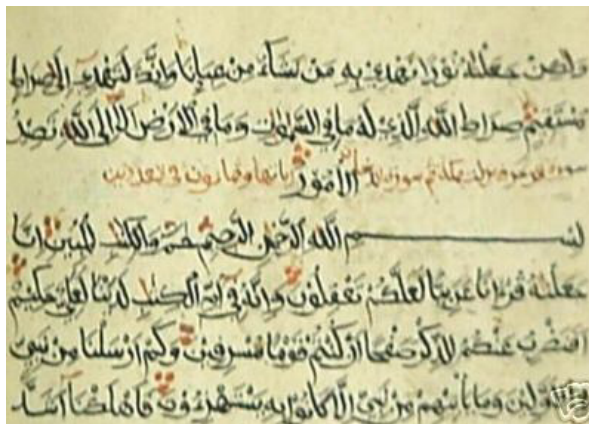 ولكن جعلنه نورا نهدي به من نشاء من عبادنا وانك لتهدي الى صراط
مستقيم صراط الله الذي له ما في السموات وما في الارض الا الى الله تصير
سورة الامور
بسم الله الرحمن الرحيم حم والكتب المبين انا
جعلنه قرانا عربيا لعلكم تعقلون وانه في ام الكتب لدينا لعلي حكيم
افنضرب عنكم الذكر صفحا ان كنتم قوما مسرفين وكم ارسلنا من نبي
في الاولين وما ياتيهم من نبي الا كانوا به يستهزءون فاهلكنا اشد